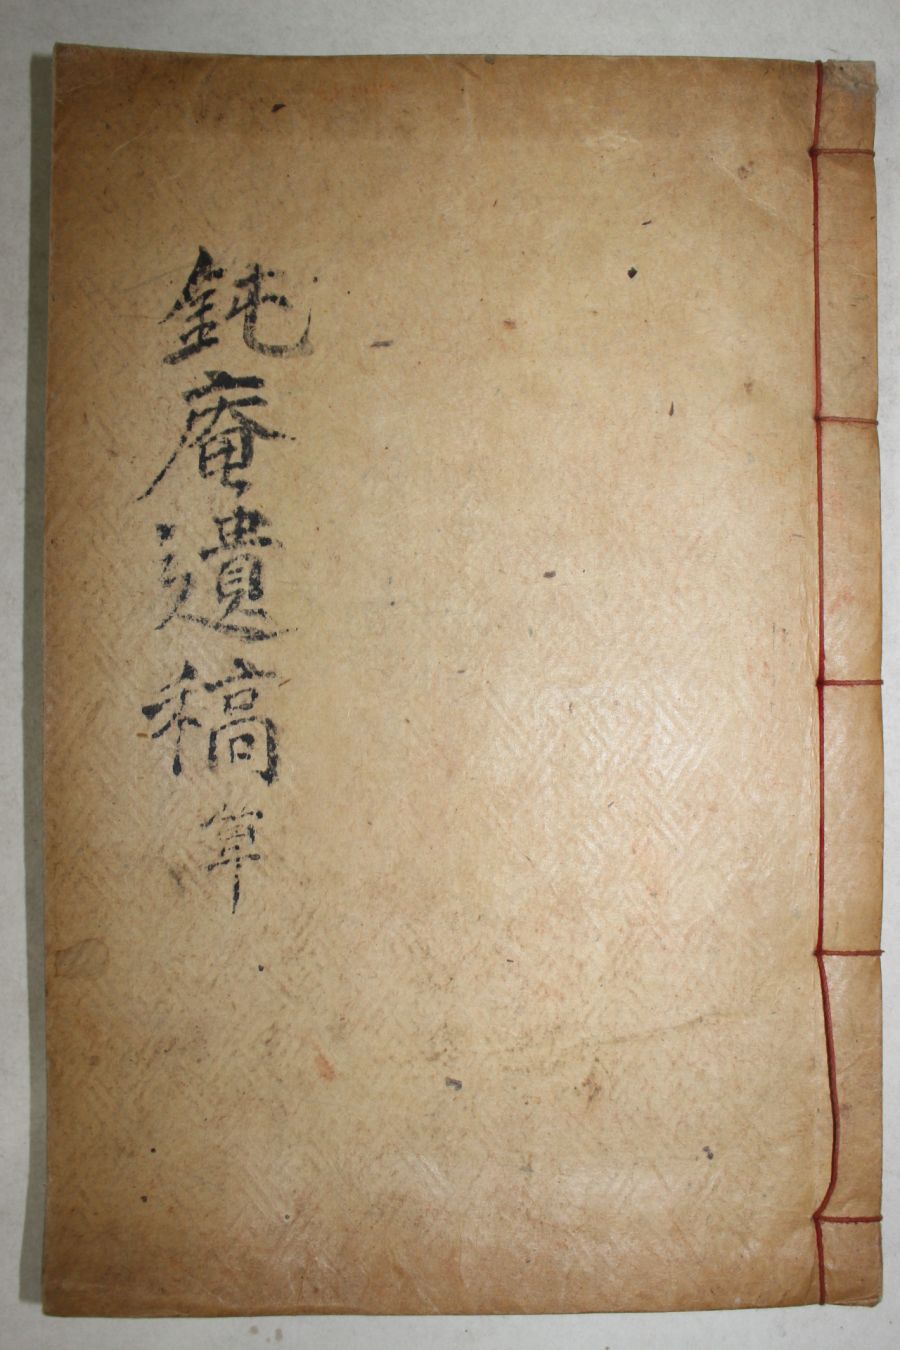 鈍庵遺稿